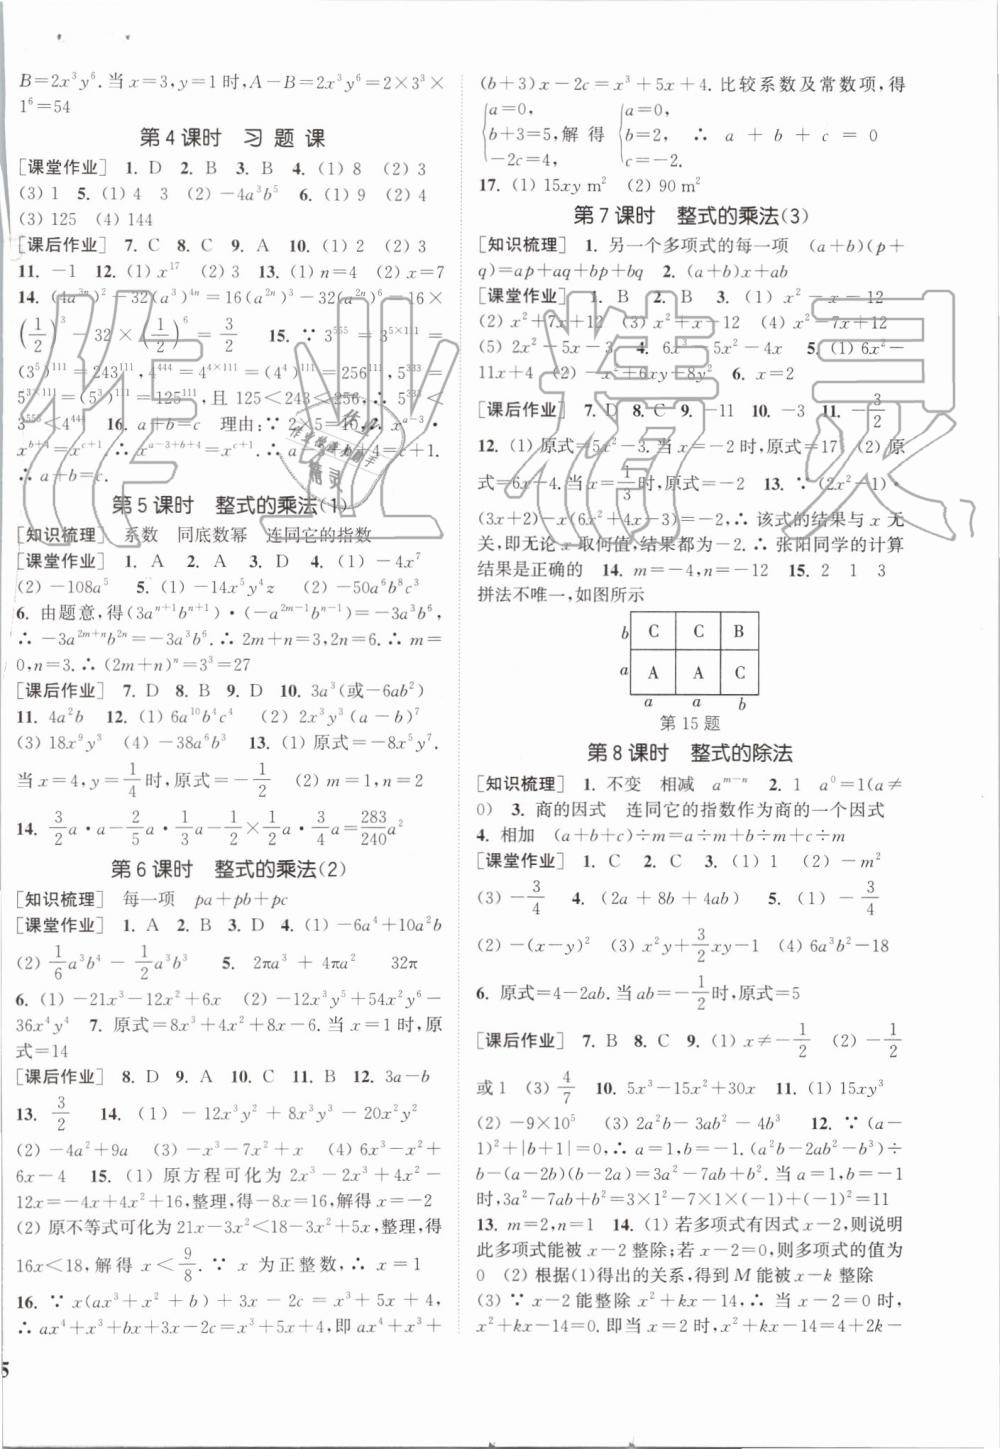 B=2x³y⁶.当x=3,y=1时,A-B=2x³y⁶=2×3³×
1⁶=54
第4课时 习题课
[课堂作业] 1. D 2. B 3. B 4. (1) 8 (2) 3
(3) 1 5. (1) 4 3 (2) -4a³b⁵ 6. (1) 9 (2) 4
(3) 125 (4) 144
[课后作业] 7. C 8. C 9. A 10. (1) 2 (2) 3
11. -1 12. (1) x¹⁷ (2) 3 13. (1) n=4 (2) x=7
14. (4a³ⁿ)²-32(a³)⁴ⁿ=16(a²ⁿ)³-32(a²ⁿ)⁶=16×
(1/2)³-32×(1/2)⁶=3/2 15. ∵ 3⁵⁵⁵=3⁵ˣ¹¹¹=
(3⁵)¹¹¹=243¹¹¹,4⁴⁴⁴=4⁴ˣ¹¹¹=(4⁴)¹¹¹=256¹¹¹,5³³³=
5³ˣ¹¹¹=(5³)¹¹¹=125¹¹¹,且125<243<256,∴ 5³³³<
3⁵⁵⁵<4⁴⁴⁴ 16. a+b=c 理由:∵ 2×5=10,∴ xᵃ⁻³·
xᵇ⁺⁴=xᶜ⁺¹,∴ xᵃ⁻³⁺ᵇ⁺⁴=xᶜ⁺¹.∴ a-3+b+4=c+1.
∴ a+b=c.
第5课时 整式的乘法(1)
[知识梳理] 系数 同底数幂 连同它的指数
[课堂作业] 1. A 2. A 3. D 4. (1) -4x⁷
(2) -108a⁵ 5. (1) -14x⁵y⁴z (2) -50a⁶b⁸c³
6. 由题意,得(3aⁿ⁺¹bⁿ⁺¹)·(-a²ᵐ⁻¹bⁿ⁻¹)=-3a³b⁶,
∴ -3a²ᵐ⁺ⁿb²ⁿ=-3a³b⁶.∴ 2m+n=3,2n=6.∴ m=
0,n=3.∴ (2m+n)ⁿ=3³=27
[课后作业] 7. D 8. B 9. D 10. 3a³(或-6ab²)
11. 4a²b 12. (1) 6a¹⁰b⁴c⁴ (2) 2x³y³(a-b)⁷
(3) 18x⁹y³ (4) -38a⁶b³ 13. (1) 原式=-8x⁵y⁷.
当x=4,y=1/4时,原式=-1/2 (2) m=1,n=2
14. 3/2a·a-2/5a·1/3a-1/2×1/2a·3/4a=283/240a²
第6课时 整式的乘法(2)
[知识梳理] 每一项 pa+pb+pc
[课堂作业] 1. A 2. B 3. D 4. (1) -6a⁴+10a²b
(2) 1/6a³b⁴-1/2a³b³ 5. 2πa³+4πa² 32π
6. (1) -21x³-12x²+6x (2) -12x³y⁵+54x²y⁶-
36x⁴y⁴ 7. 原式=8x³+4x²+8x-6.当x=1时,原
式=14
[课后作业] 8. D 9. A 10. C 11. B 12. 3a-b
13. 3/2 14. (1) -12x³y²+8x³y³-20x²y²
(2) -4a²+9a (3) -x³-7x²+x (4) 6x³-x²+
6x-4 15. (1) 原方程可化为2x³-2x³+4x²-
12x=-4x+4x²+16,整理,得-8x=16,解得x=-2
(2) 原不等式可化为21x-3x²<18-3x²+5x,整理,得
16x<18,解得x<9/8.∵ x为正整数,∴ x=1
16. ∵ x(ax³+x²+b)+3x-2c=x³+5x+4,
∴ ax⁴+x³+bx+3x-2c=x³+5x+4,即ax⁴+x³+
5
(b+3)x-2c=x³+5x+4.比较系数及常数项,得
{a=0, b+3=5, -2c=4,解得{a=0, b=2, c=-2. ∴ a+b+c=0
17. (1) 15xy m² (2) 90 m²
第7课时 整式的乘法(3)
[知识梳理] 1. 另一个多项式的每一项 (a+b)(p+
q)=ap+aq+bp+bq 2. (a+b)x+ab
[课堂作业] 1. B 2. B 3. (1) x²-x-12
(2) x²+7x+12 (3) x²+x-12 (4) x²-7x+12
(5) 2x²-5x-3 4. 6x³-5x²-4x 5. (1) 6x²-
11x+4 (2) -x²+6xy+8y² 6. x=2
[课后作业] 7. D 8. C 9. -11 10. -3 11. -3/2
12. (1) 原式=5x²-3.当x=-2时,原式=17 (2) 原
式=6x+4.当x=1/3时,原式=6 13. ∵ (2x²-1)·
(3x+2)-x(6x²+4x-3)=-2,∴ 该式的结果与x无
关,即无论x取何值,结果均为-2.∴ 张阳同学的计算
结果是正确的 14. m=-4,n=-12 15. 2 1 3
拼法不唯一,如图所示
b C C B
a A A C
a a b
第15题
第8课时 整式的除法
[知识梳理] 1. 不变 相减 aᵐ⁻ⁿ 2. 1 a⁰=1(a≠
0) 3. 商的因式 连同它的指数作为商的一个因式
4. 相加 (a+b+c)÷m=a÷m+b÷m+c÷m
[课堂作业] 1. C 2. C 3. (1) 1 (2) -m²
(3) -3/4 4. (2a+8b+4ab) 5. (1) -3/4
(2) -(x-y)² (3) x²y+3/2xy-1 (4) 6a³b²-18
6. 原式=4-2ab.当ab=-1/2时,原式=5
[课后作业] 7. B 8. C 9. (1) x≠-1/2 (2) -1/2
或1 (3) 4/7 10. 5x³-15x²+30x 11. (1) 15xy³
(2) -9×10⁵ (3) 2a²b-3ab²-4b³ 12. ∵ (a-
1)²+|b+1|=0,∴ a=1,b=-1.(a²b-2ab²-b³)÷
b-(a-2b)(b-2a)=3a²-7ab+b².当a=1,b=-1
时,3a²-7ab+b²=3×1²-7×1×(-1)+(-1)²=11
13. m=2,n=1 14. (1) 若多项式有因式x-2,则说明
此多项式能被x-2整除;若x-2=0,则多项式的值为
0 (2) 根据(1)得出的关系,得到M能被x-k整除
(3) ∵ x-2能整除x²+kx-14,∴ 当x-2=0时,
x²+kx-14=0.即当x=2时,x²+kx-14=4+2k-